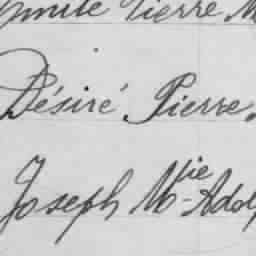 Emile Pierre M
Désiré Pierre.
Joseph Mie-Adolp